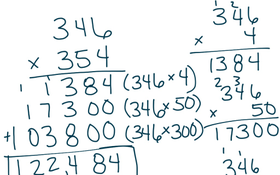 346
× 354
1384 (346 × 4)
17300 (346 × 50)
+103800 (346 × 300)
122,484
1 2
346
× 4
1384
2 3
346
× 50
17300
1 1
346